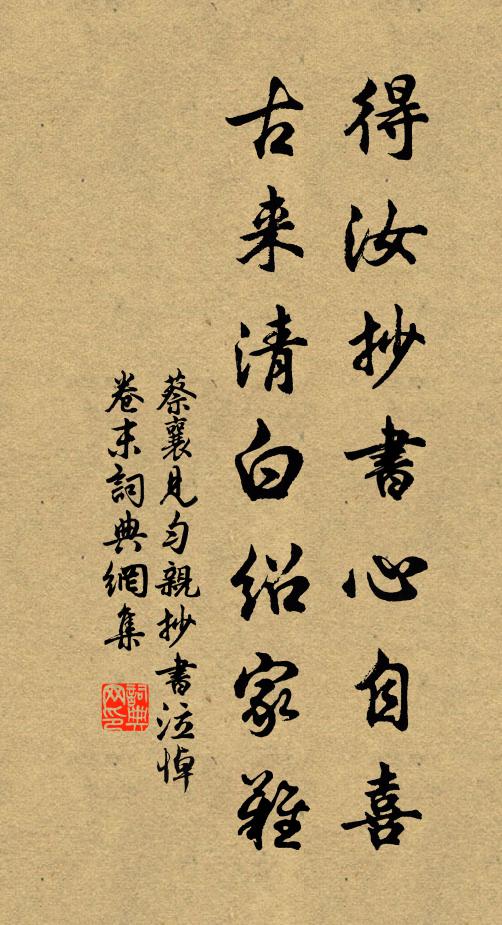 得汝抄書心自喜
古来清白紹家難
蔡襄見勻親抄書泣悼
卷末詞典網集
詞典
网印